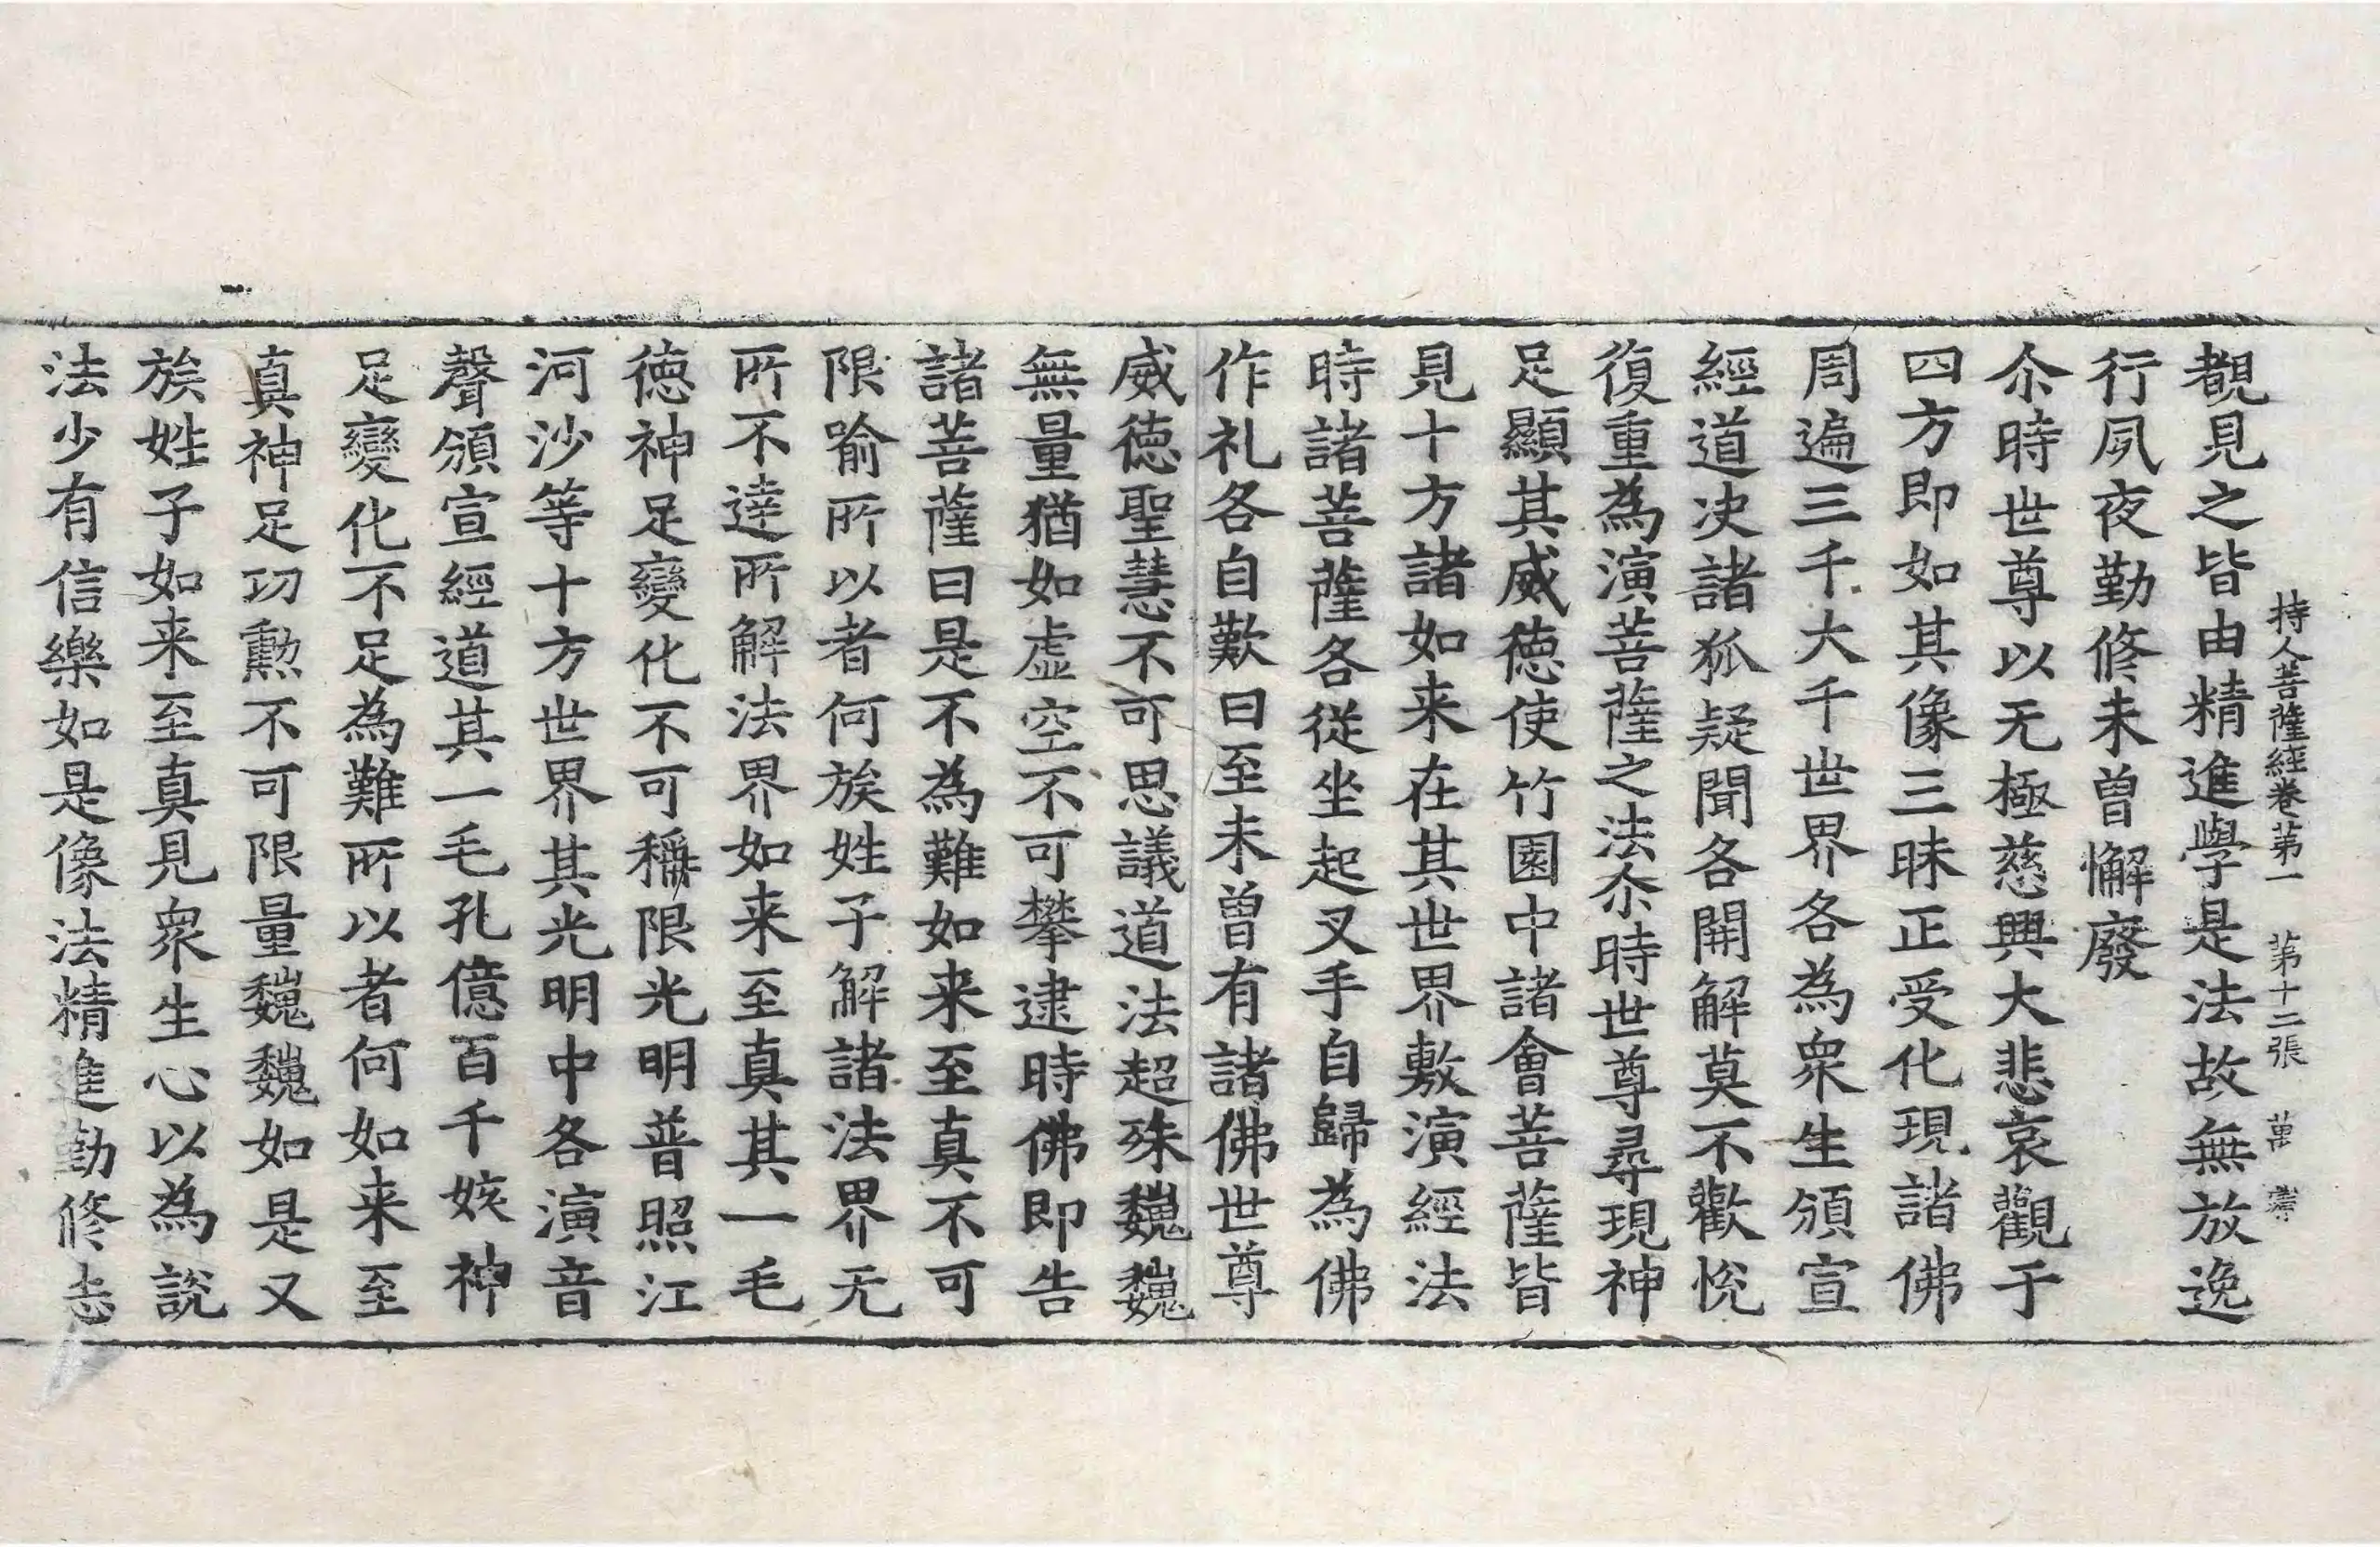 持人菩薩經卷第一　第十二張　萬
覩見之皆由精進學是法故無放逸
行夙夜勤修未曾懈廢
尒時世尊以无極慈興大悲哀觀于
四方即如其像三昧正受化現諸佛
周遍三千大千世界各為衆生頒宣
經道决諸狐疑聞各開解莫不歡悅
復重為演菩薩之法尒時世尊尋現神
足顯其威德使竹園中諸會菩薩皆
見十方諸如来在其世界敷演經法
時諸菩薩各從坐起叉手自歸為佛
作礼各自歎曰至未曾有諸佛世尊
威德聖慧不可思議道法超殊巍巍
無量猶如虛空不可攀逮時佛即告
諸菩薩曰是不為難如来至真不可
限喻所以者何族姓子解諸法界无
所不達所解法界如来至真其一毛
德神足變化不可稱限光明普照江
河沙等十方世界其光明中各演音
聲頒宣經道其一毛孔億百千姟神
足變化不足為難所以者何如来至
真神足功勲不可限量巍巍如是又
族姓子如来至真見衆生心以為說
法少有信樂如是像法精進勤修志